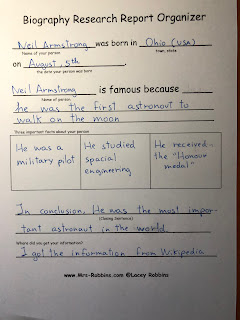 Biography Research Report Organizer
Neil Armstrong was born in Ohio (USA)
Name of your person town, state
on August, 5th.
the date your person was born
Neil Armstrong is famous because
Name of person
he was the first astronaut to
walk on the moon
Three important facts about your person
He was a
military pilot
He studied
spacial
engineering
He received
the "Honour
medal"
In conclusion, He was the most impor-
(Closing Sentence)
tant astronaut in the world.
Where did you get your information?
I got the information from Wikipedia
www.Mrs-Robbins.com @Lacey Robbins